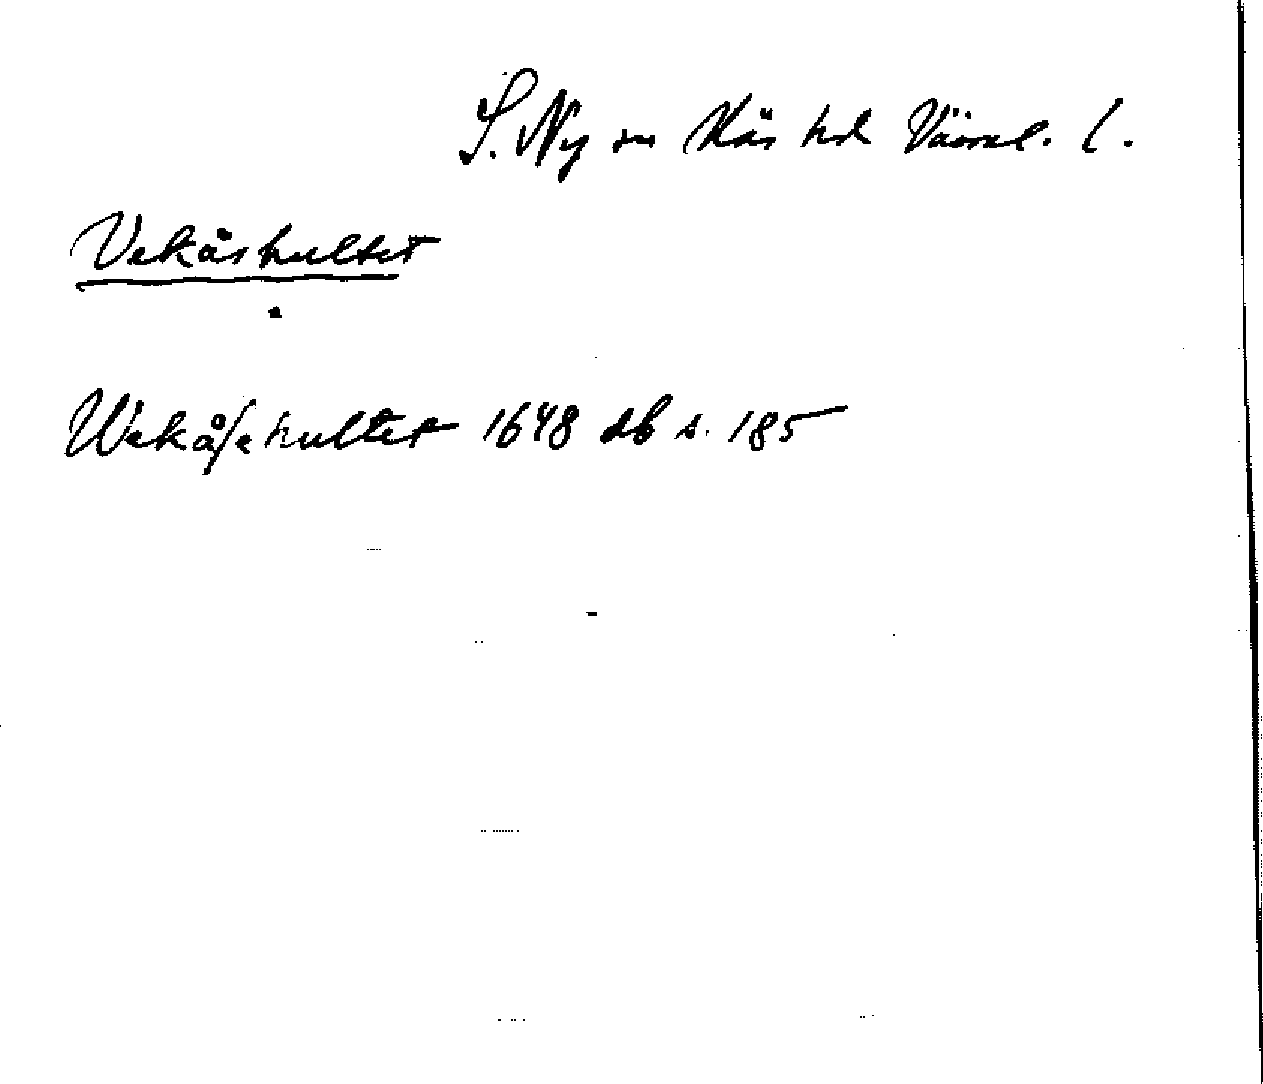 S. Ny sn Näs hd Värml. l.
Vekåshultet
Wekåſehultet 1648 db s. 185